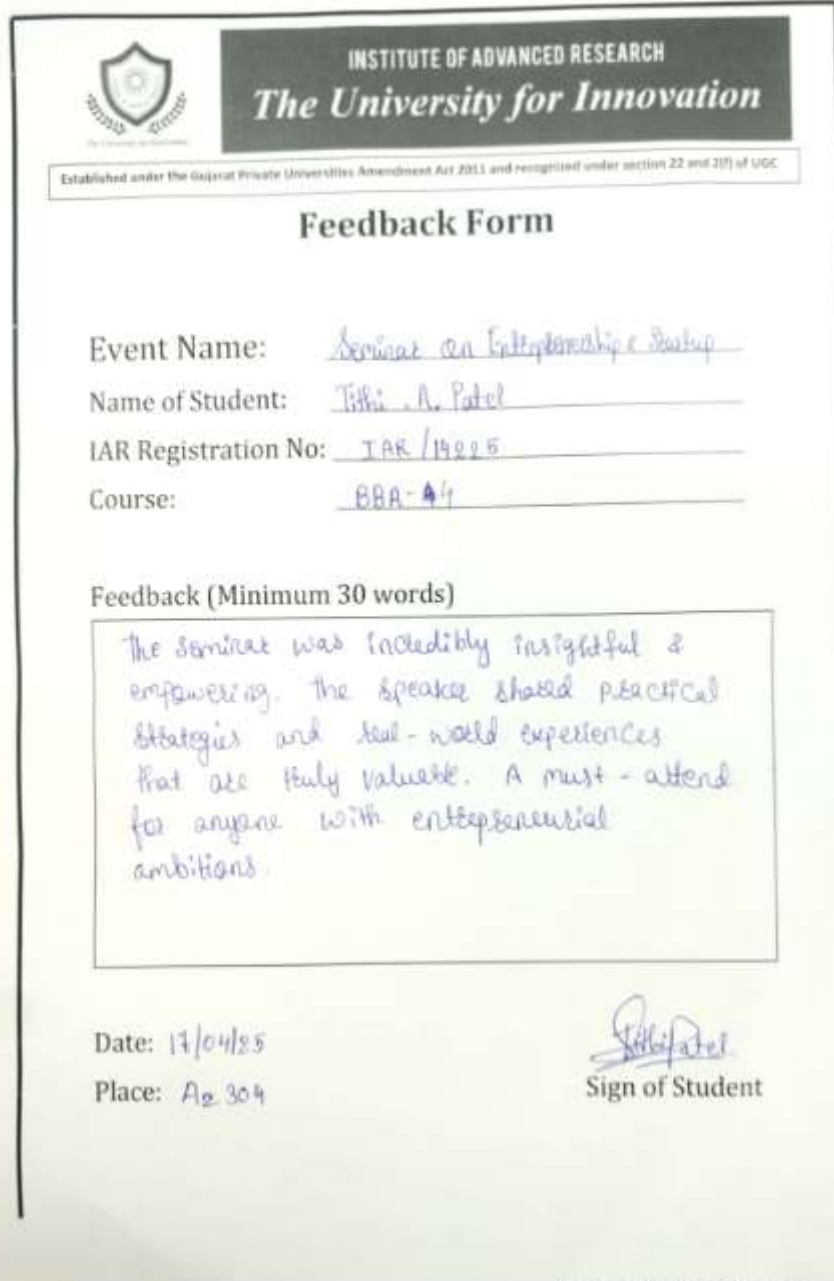 INSTITUTE OF ADVANCED RESEARCH
The University for Innovation
Established under the Gujarat Private Universities Amendment Act 2011 and recognized under section 22 and 2(f) of UGC
Feedback Form
Event Name: Seminar on Entrepreneurship & Startup
Name of Student: Tithi . A. Patel
IAR Registration No: IAR/14225
Course: BBA-4
Feedback (Minimum 30 words)
The seminar was incredibly insightful &
empowering. The speaker shared practical
strategies and real-world experiences
that are truly valuable. A must-attend
for anyone with entrepreneurial
ambitions.
Date: 17/04/25
Place: A2 304
Tithi Patel
Sign of Student